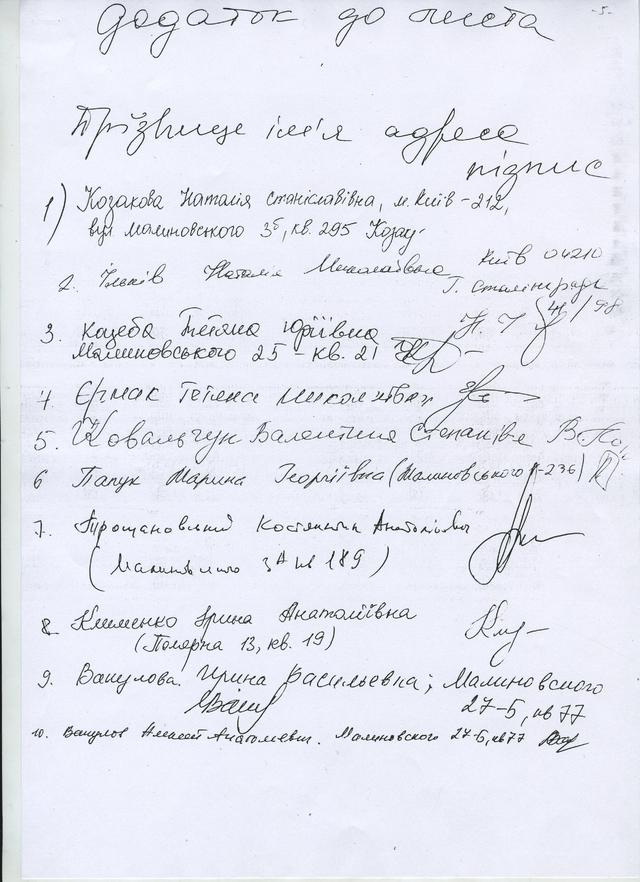 - 5 -
Додаток до листа
Прізвище ім'я адреса
підпис
1) Козакова Наталія Станіславівна, м. Київ - 212,
вул Малиновського 3б, кв. 295
2. Ільків Наталія Миколаївна Київ 04210
Г. Сталінграда
3. Кацеба Тетяна Юріївна
Малиновського 25 - кв. 21
4. Єрмак Тетяна Миколаївна
5. Ковальчук Валентина Степанівна
6 Папук Марина Георгіївна (Малиновського
7. Трощановський Костянтин Анатолійович
189)
8. Клименко Ірина Анатоліївна
(Полярна 13, кв. 19)
9. Вакулова Ирина Васильевна; Малиновского
27-Б, кв 77
10. Вакулов Алексей Анатолиевич. Малиновского 27-Б, кв 77